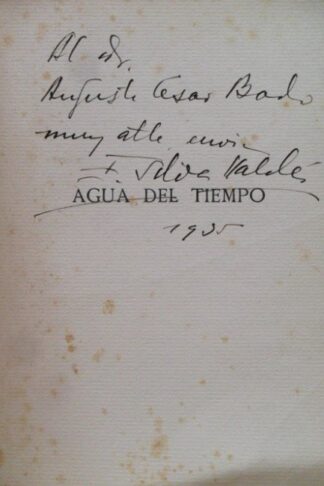 Al dr.
Augusto Cesar Bado
muy atte. envía
F. Silva Valdés
AGUA DEL TIEMPO
1935